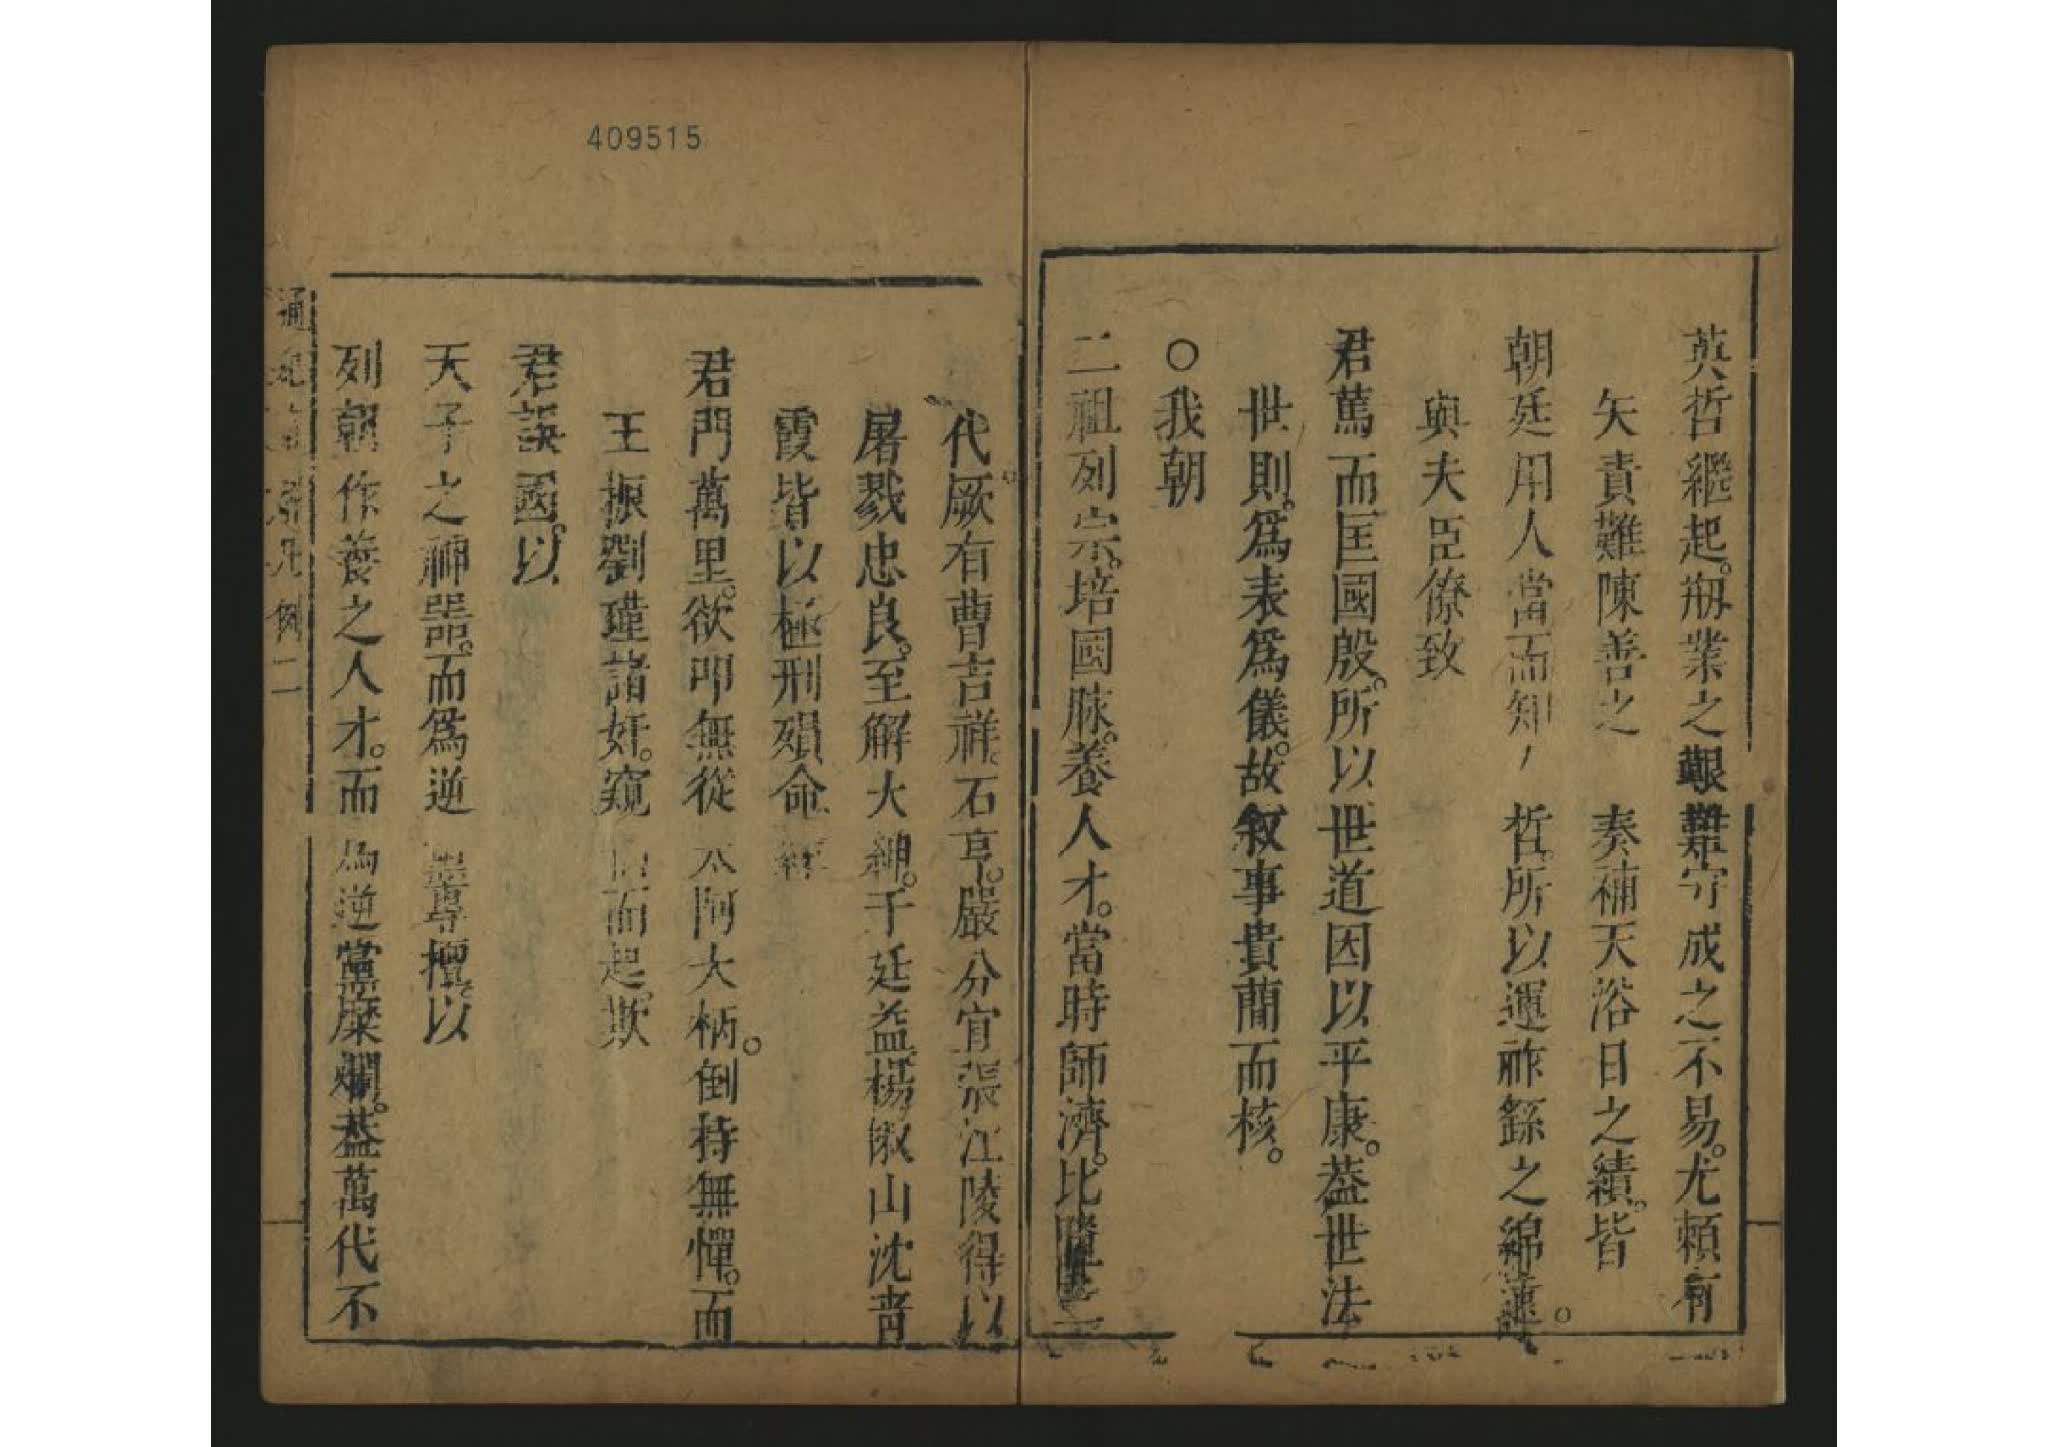 英哲繼起。剏業之艱難守成之不易。尤頼有
矢責難陳善之 奏補天浴日之績。皆
朝廷用人當而知 哲。所以運祚繇之綿
與夫臣僚致
君篤而匡國殷。所以世道因以平康。葢世法
世則。爲表爲儀。故叙事貴蕑而核。
○我朝
二祖列宗。培國脉。養人才。當時師濟。比隆
代。厥有曹吉祥。石亨。嚴分宜張江陵得以
屠戮忠良。至解大紳。于廷益。楊椒山沈青
霞皆以極刑殞命
君門萬里。欲叩無從 太阿大柄。倒持無憚。而
王振劉瑾諸奸。窺 而起。欺
君誤國。以
天子之神噐。而爲逆 專擅。以
列朝作養之人才。而為逆黨糜爛。葢萬代不
通紀 凡例 二
409515